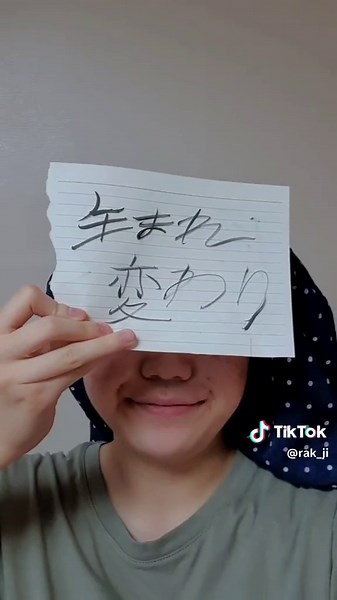 生まれ
変わり
TikTok
@rak_ji